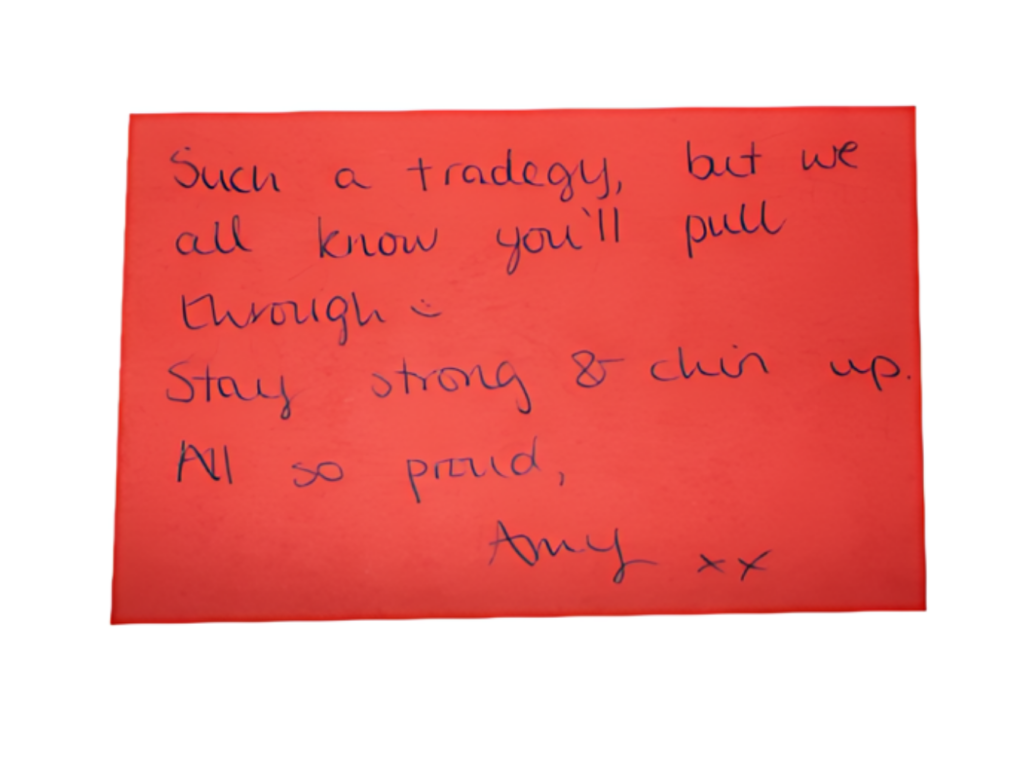 Such a tradegy, but we
all know you'll pull
through :)
Stay strong & chin up.
All so proud,
Amy xx